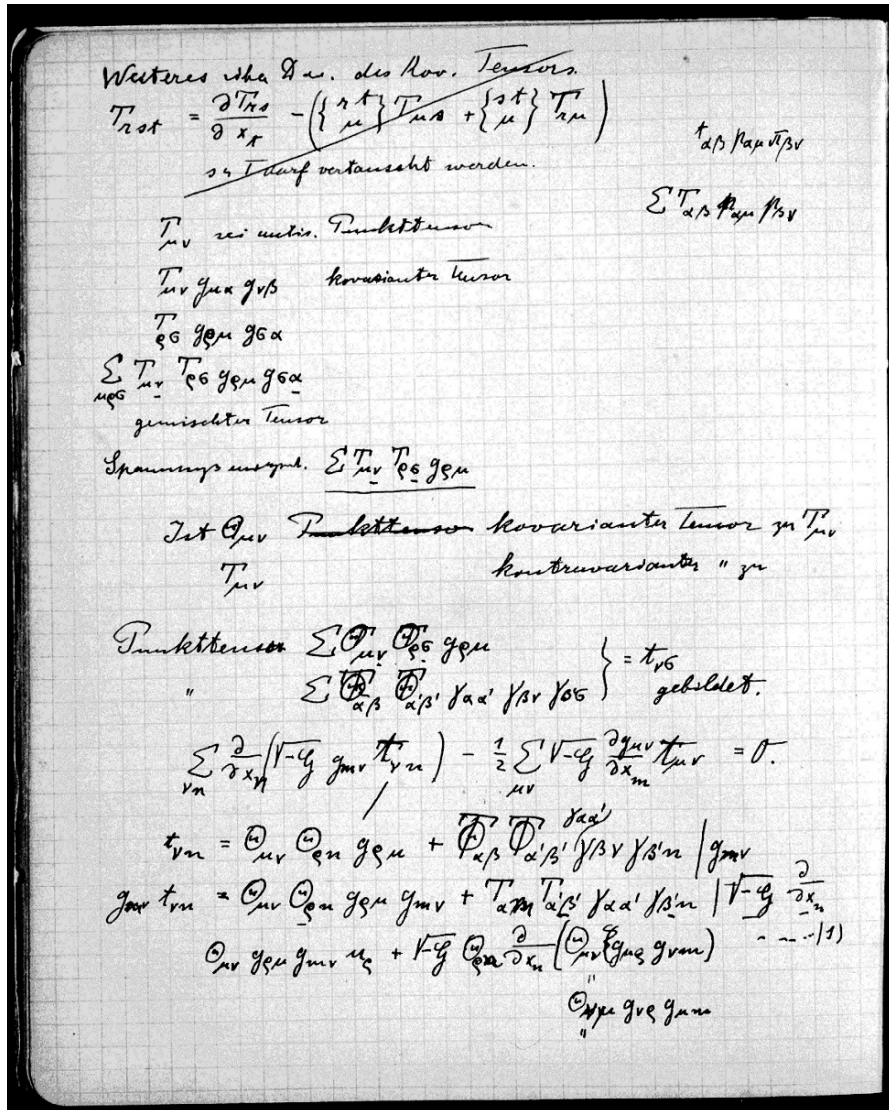 Weiteres über Div. des Kov. Tensors.
T_rst = ∂T_rs/∂x_t − ({r t / μ} T_μs + {s t / μ} T_rμ)
darf vertauscht werden.
t_αβ p_αμ π_βν
Σ T_αβ p_αμ p_βν
T_μν sei antis. Punkttensor
T_μν g_μα g_νβ kovarianter Tensor
T_ρσ g_ρμ g_σα
Σ_μρσ T_μν T_ρσ g_ρμ g_σα
gemischter Tensor
Σ T_μν T_ρσ g_ρμ
Ist Θ_μν Punkttensor kovarianter Tensor zu T_μν
T_μν kontravarianter " zu
Punkttensor Σ Θ_μν Θ_ρσ g_ρμ
" Σ T_αβ T_α'β' γ_αα' γ_βν γ_β'σ } = t_νσ gebildet.
Σ_νn ∂/∂x_n (√−G g_mν t_νn) − ½ Σ_μν √−G ∂g_μν/∂x_m t_μν = 0.
t_νn = Θ_μν Θ_ρn g_ρμ + T_αβ T_α'β' γ_αα' γ_βν γ_β'n | g_mν
g_mν t_νn = Θ_μν Θ_ρn g_ρμ g_mν + T_αm T_α'β' γ_αα' γ_β'n | √−G ∂/∂x_n
Θ_μν g_ρμ g_mν u_ρ + √−G Θ_ρn ∂/∂x_n (Θ_μν g_μρ g_νm) - - - -(1)
Θ_νμ g_νρ g_μm